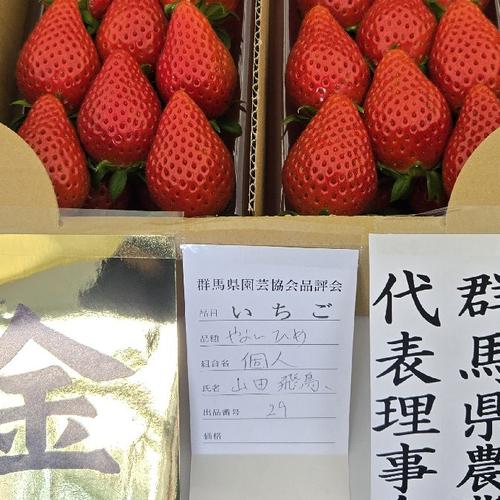 金
群馬県園芸協会品評会
品目 いちご
品種 やよいひめ
組合名 個人
氏名 山田 飛鳥
出品番号 29
価格
群馬県農
代表理事